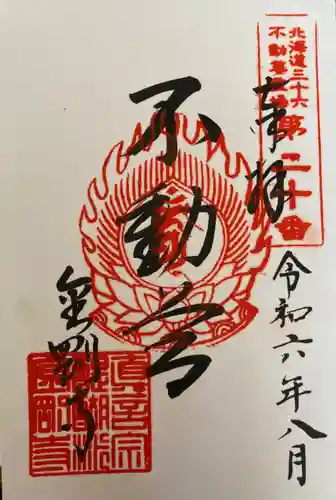 北海道三十六
不動尊霊場
第二十番
奉拝
令和六年八月
不動尊
金剛寺
真言宗
金剛寺